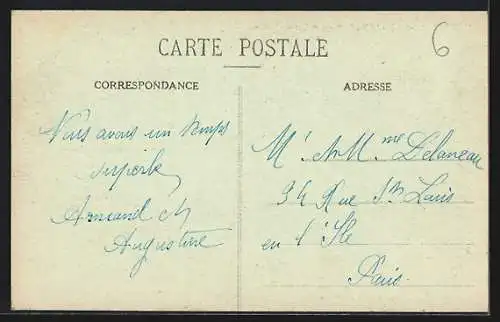 CARTE POSTALE
6
CORRESPONDANCE
Nous avons un temps
superbe
Armand et
Augustine
ADRESSE
Mr et Mme Delaneau
34 Rue St Louis
en l'Ile
Paris